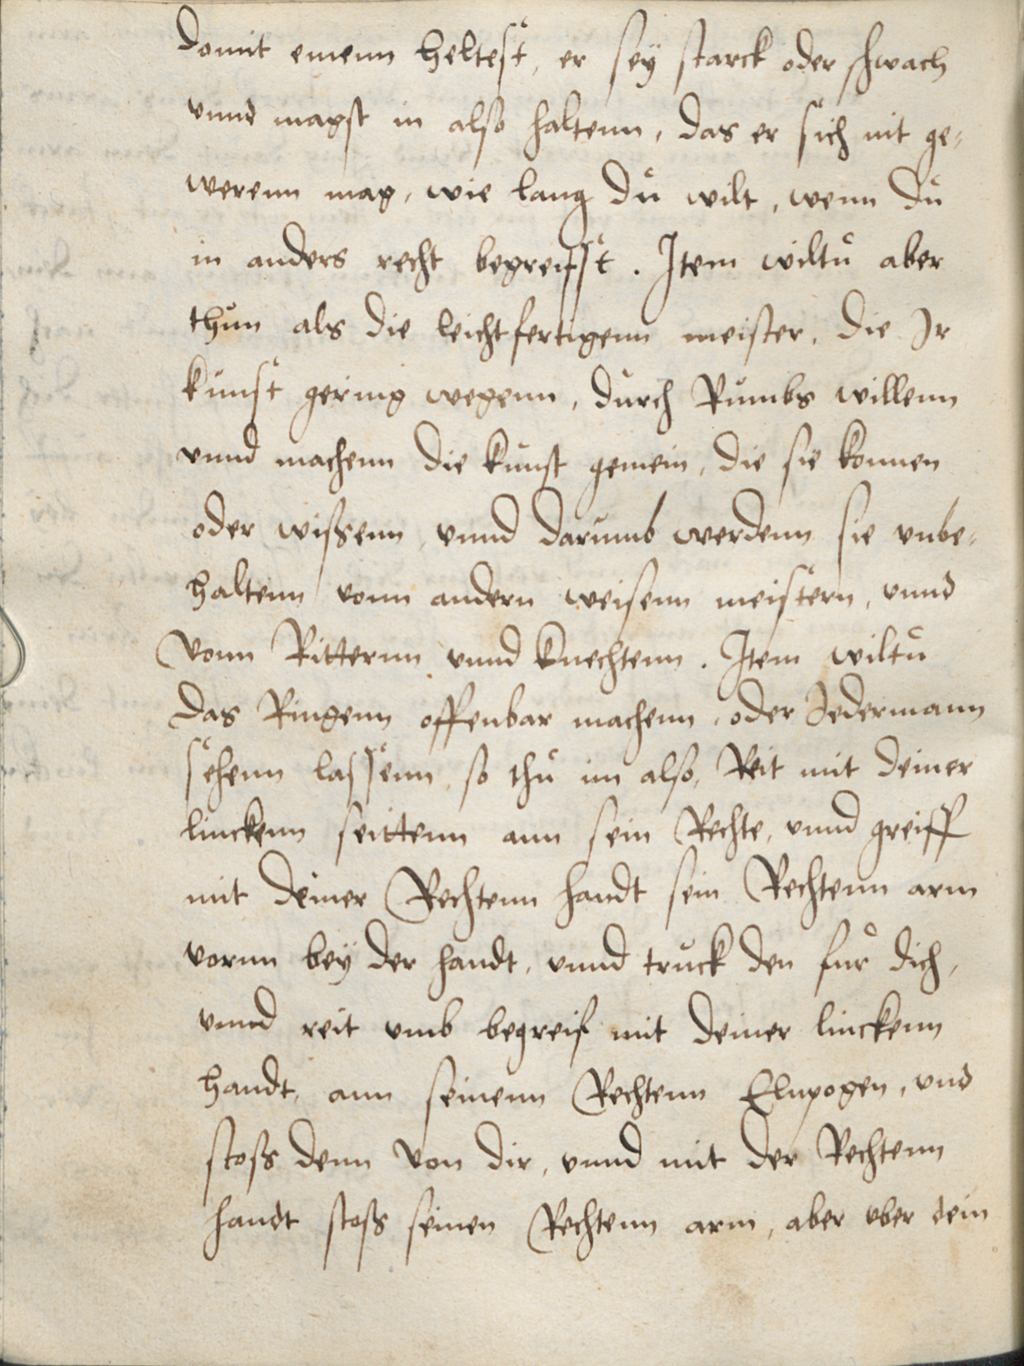 domit einenn heltest, er seÿ starck oder schwach
vnnd magst in also haltenn, das er sich nit ge-
werenn mag, wie lang du wilt, wenn du
in anders recht begreiffst. Item wiltu aber
thun als die leichtfertigenn meister, die Ir
kunst gering wegenn, durch Rumbs willenn
vnnd machenn die kunst gemein, die sie konnen
oder wissenn, vnnd darumb werdenn sie vnbe-
haltenn vonn andern weisenn meistern, vnnd
Vonn Ritternn vnnd knechtenn. Item wiltu
das Ringenn offenbar machenn, oder Jedermann
sehenn lassenn, so thu im also, Reit mit deiner
linckenn seittenn ann sein Rechte, vnnd greiff
mit deiner Rechtenn handt sein Rechtenn arm
vornn beÿ der handt, vnnd truck den fur dich,
vnnd reit vmb begreif mit deiner linckenn
handt, ann seinenn Rechtenn Elnpogen, vnd
stoss denn von dir, vnnd mit der Rechtenn
handt stoss seinen Rechtenn arm, aber vber dein